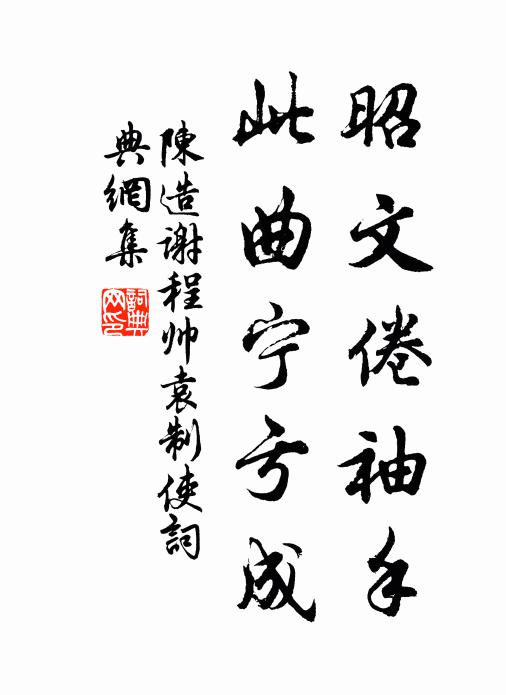 昭文倦袖手
此曲宁亏成
陳造谢程帅袁制使詞
典網集
詞典網印